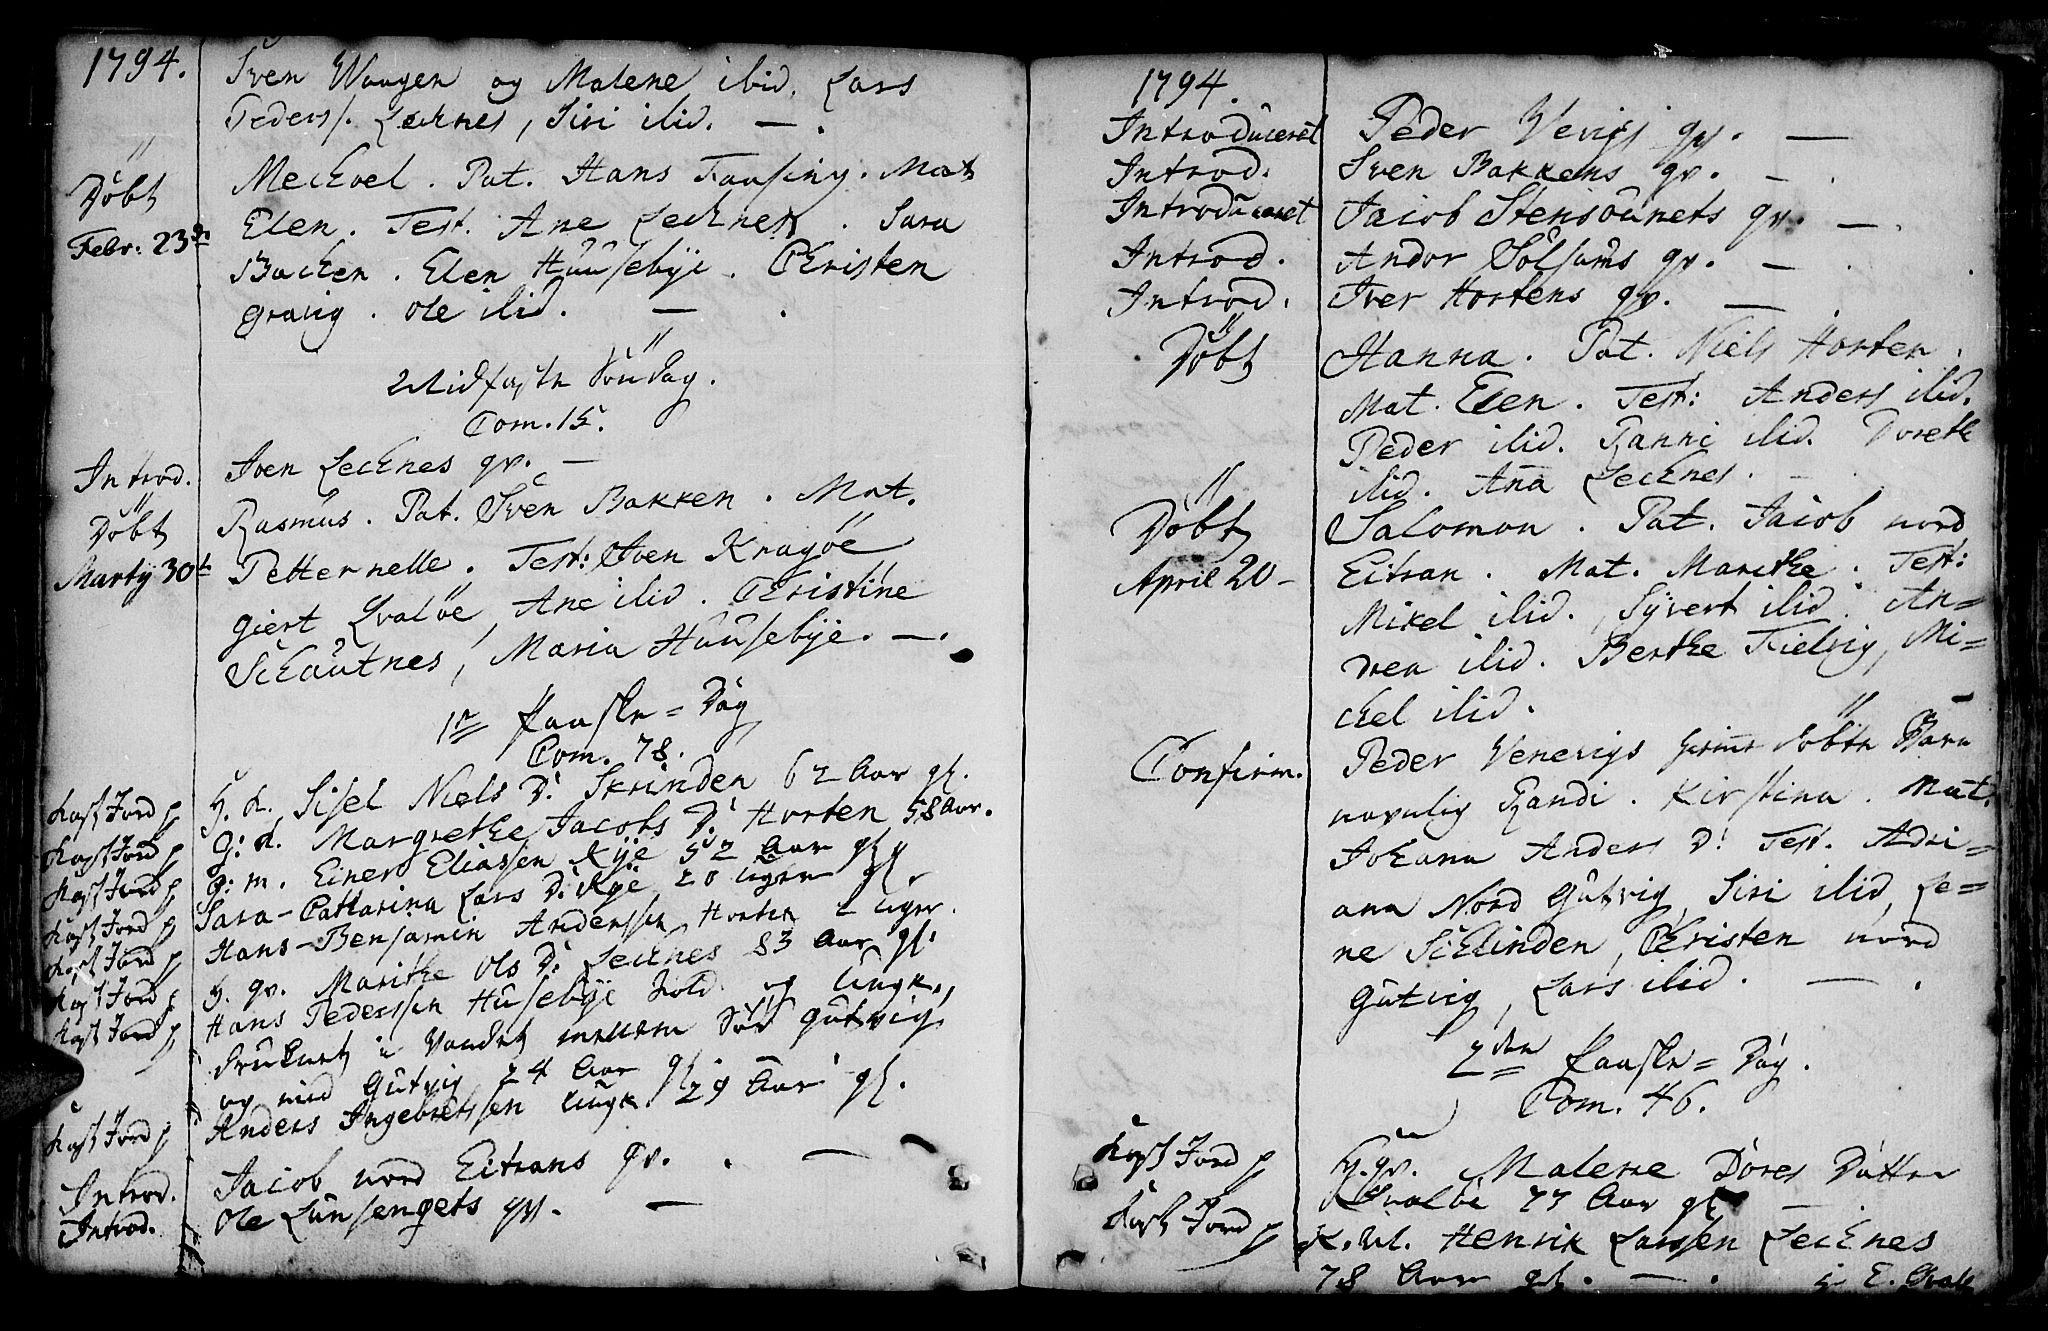 1794.
Sven Waagen og Malene ibid. Lars
Peders: Lecknes, Siri ibid. — .
Döbt Meckel. Pat. Hans Fausing. Mat
Febr. 23de Elen. Test. Ane Lecknes. Sara
Backen. Elen Huusebÿe. Christen
Gravig. Ole ibid. — .
Midfaste Söndag.
Com. 15.
Introd. Iven Lecknes qv. —
Döbt Rasmus. Pat. Sven Bakken. Mat.
Martÿ 30t Petternelle. Test: Iven Kragöe
Giert Qvalöe, Ane ibid. Christine
Schautnes, Maria Huusebÿe. — .
1te Paaske-Dag
Com. 78.
Kast Jord p H. K. Sisel Niels D. Skrinden 62 Aar gl.
Kast Jord p G: K. Margrethe Jacobs D: Horten 58 Aar.
Kast Jord p G: M. Einer Eliassen Rÿe 52 Aar gl.
Kast Jord p Sara-Catharina Lars D. Rÿe 20 uger gl.
Kast Jord p Hans-Benjamin Anderssen Horten 2 uger.
Kast Jord p H. qv. Marithe Ols D: Lecknes 83 Aar gl.
Kast Jord p Hans Pederssen Husebÿe Sold. og ungk.,
druknet i Vandet mellem Sör Gutvig
og nord Gutvig 24 Aar gl.
Kast Jord p Anders Ingebretssen ungk. 29 Aar gl.
Introd. Jacob nord Eitrans qv. . —
Introd. Ole Lunsengets qv. —
1794.
Introduceret Peder Vevigs qv. —
Introd. Sven Bakkens qv. — .
Introduceret Jacob Stensöunets qv. — .
Introd. Andor Sölsums qv. — .
Introd. Iver Hortens qv. — .
Döbt Hanna. Pat. Niels Horten.
Mat. Elen. Test: Anders ibid.
Peder ibid. Ranni ibid. Dorethe
ibid. Ana Lecknes. —
Döbt Salomon. Pat. Jacob nord
April 20- Eitran. Mat. Marithe. Test:
Mikel ibid., Sÿvert ibid. An=
drea ibid. Berthe Fielvig, Mi=
ckel ibid.
Confirm. Peder Venevigs hjemme döbte Barn
navnlig Randi. Kirstina. Mat.
Johana Anders D: Test. Adri=
ana Nord Gutvig, Siri ibid, Le=
ne Schlinden, Christen nord
Gutvig, Lars ibid. — .
2den Paaske=Dag.
Com. 46.
Kast Jord p H. qv. Malene Döres Datter
Qvalöe 77 Aar gl. — .
Kast Jord p K. M. Henrik Larssen Lecknes
78 Aar gl. — .